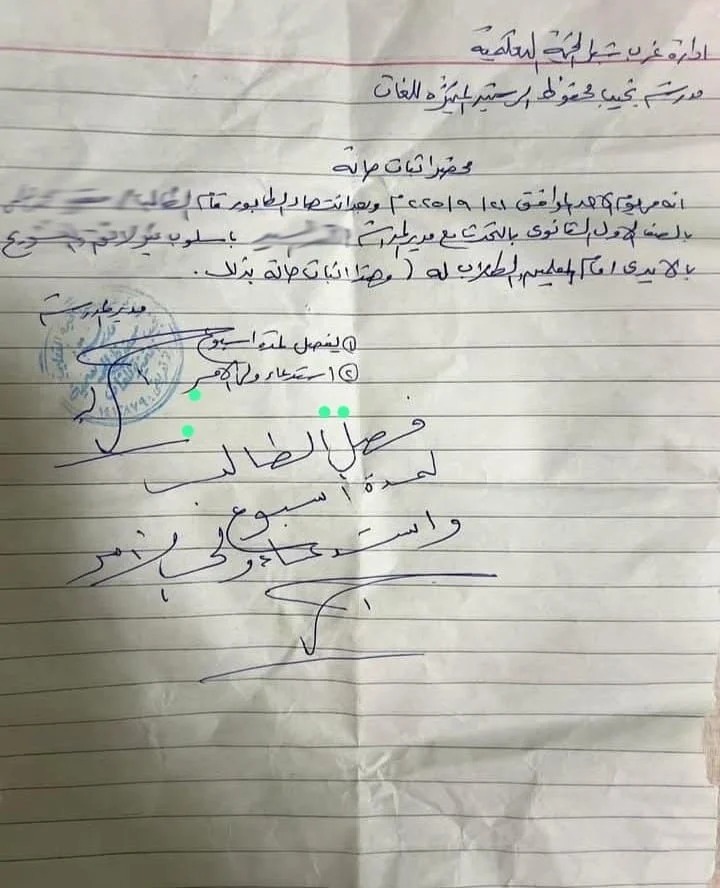 ادارة غرب شبرا الخيمة التعليمية
مدرسة نجيب محفوظ الرسمية المتميزة للغات
محضر اثبات حالة
انه فى يوم الاحد الموافق ٢٠٢٥/٩/٢١ م وبعد انتهاء الطابور قام الطالب/
بالصف الاول الثانوى بالتحدث مع مدير المدرسة باسلوب غير لائق
بالايدى امام المعلمين والطلاب له (وهذا اثبات حالة بذلك.
مدير المدرسة
① يفصل لمدة اسبوع
② استدعاء ولى الامر
فصل الطالب
لمدة أسبوع
واستدعاء ولى الأمر